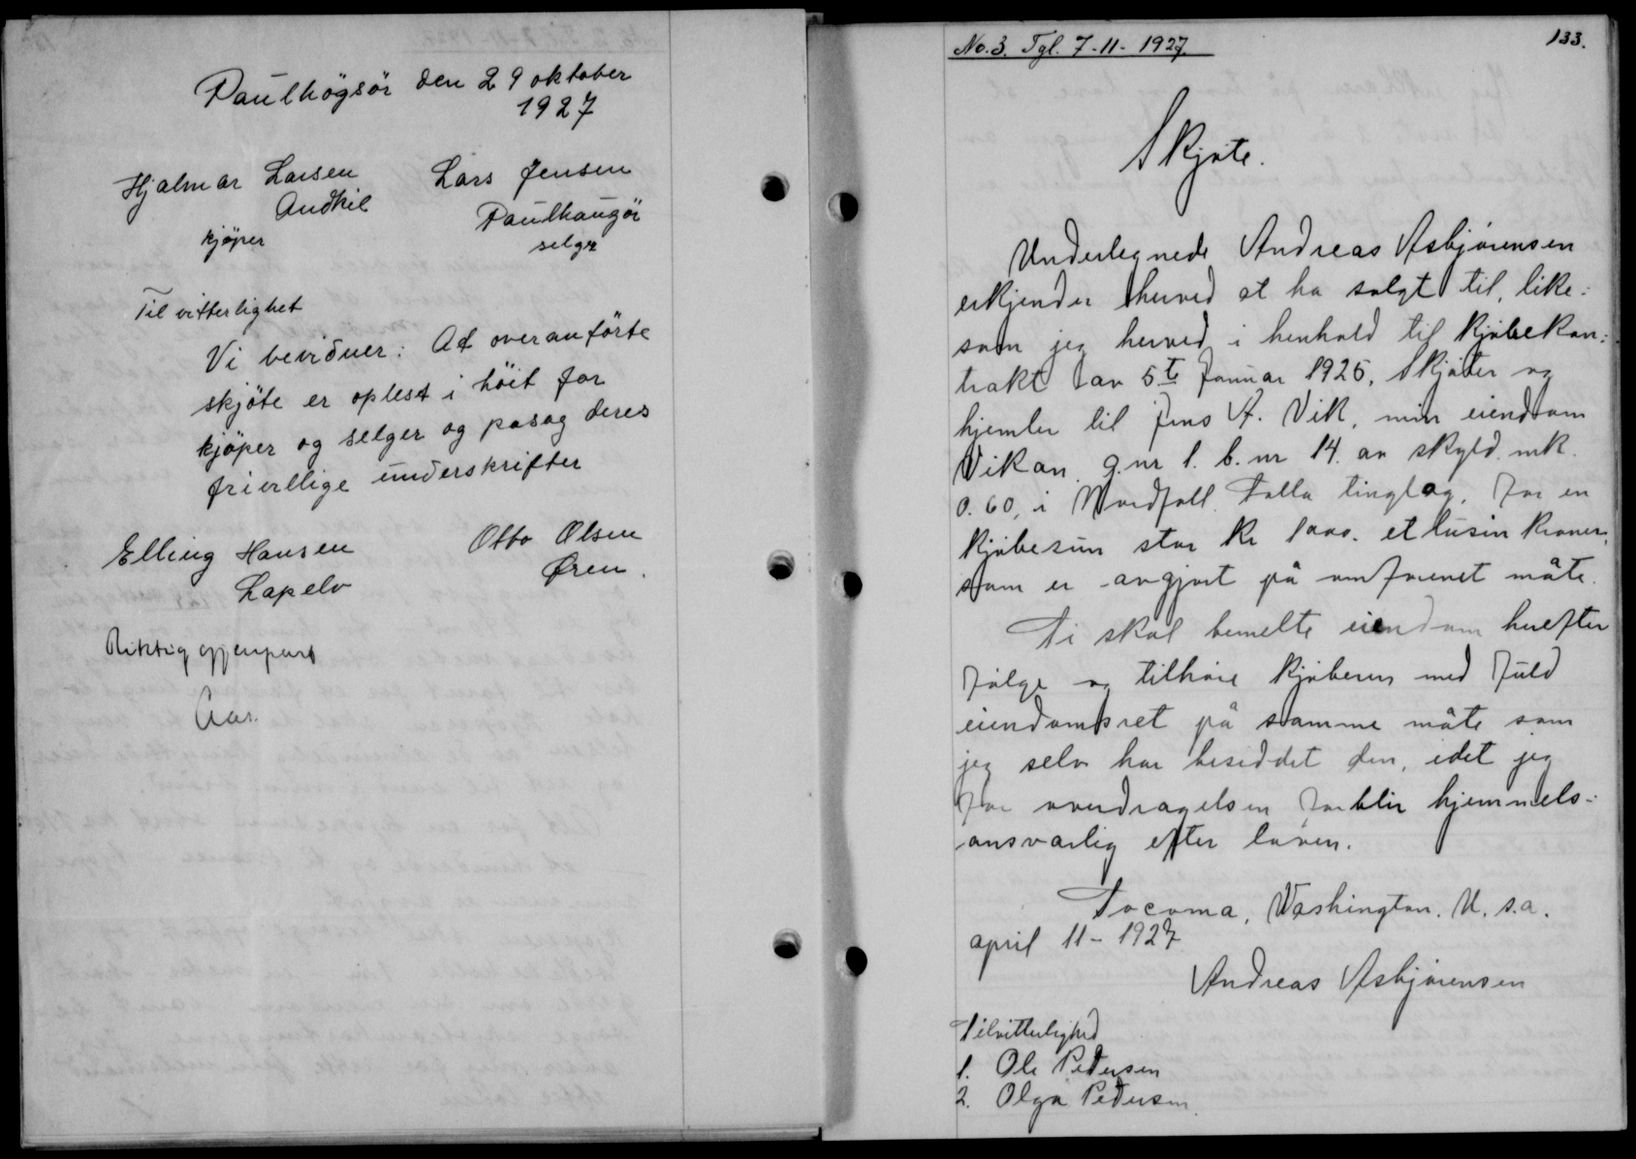 Paulhögsör den 29 oktober
1927
Hjalmar Larsen
Andkil
kjöper
Lars Jensen
Paulhaugör
selger
Til vitterlighet
Vi bevidner: At overanförte
skjöte er oplest i höit for
kjöper og selger og pasag deres
frivellige underskrifter
Elling Hansen
Lapelv
Otto Olsen
Øren.
Riktig gjenpart
No. 3. Tgl. 7-11-1927.
133.
Skjøte.
Undertegnede Andreas Asbjørensen
erkjender herved at ha solgt til, like-
som jeg herved i henhold til Kjøbekon-
trakt av 5te Januar 1925, Skjøter og
hjemler til Jens A. Vik, min eiendom
Vikan g.nr 1. b.nr 14. av skyld mk.
0.60, i Nordfoll. Folla tinglag, for en
Kjøbesum stor kr 1000. et tusin kroner,
som er avgjort på omforenet måte.
Ti skal bemelte eiendom herefter
følge og tilhøre Kjøberen med fuld
eiendomsret på samme måte som
jeg selv har besiddet den, idet jeg
for overdragelsen forblir hjemmels-
ansvarlig efter loven.
Tocoma, Washington. U. s.a.
april 11 - 1927
Andreas Asbjørensen
Tilvitterlighed
1. Ole Pedersen
2. Olga Pedersen.